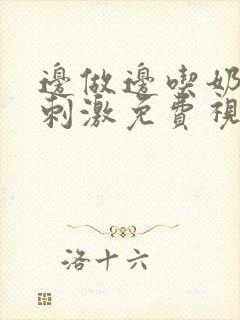 邊做邊喫奶
刺激免費視
洛十六